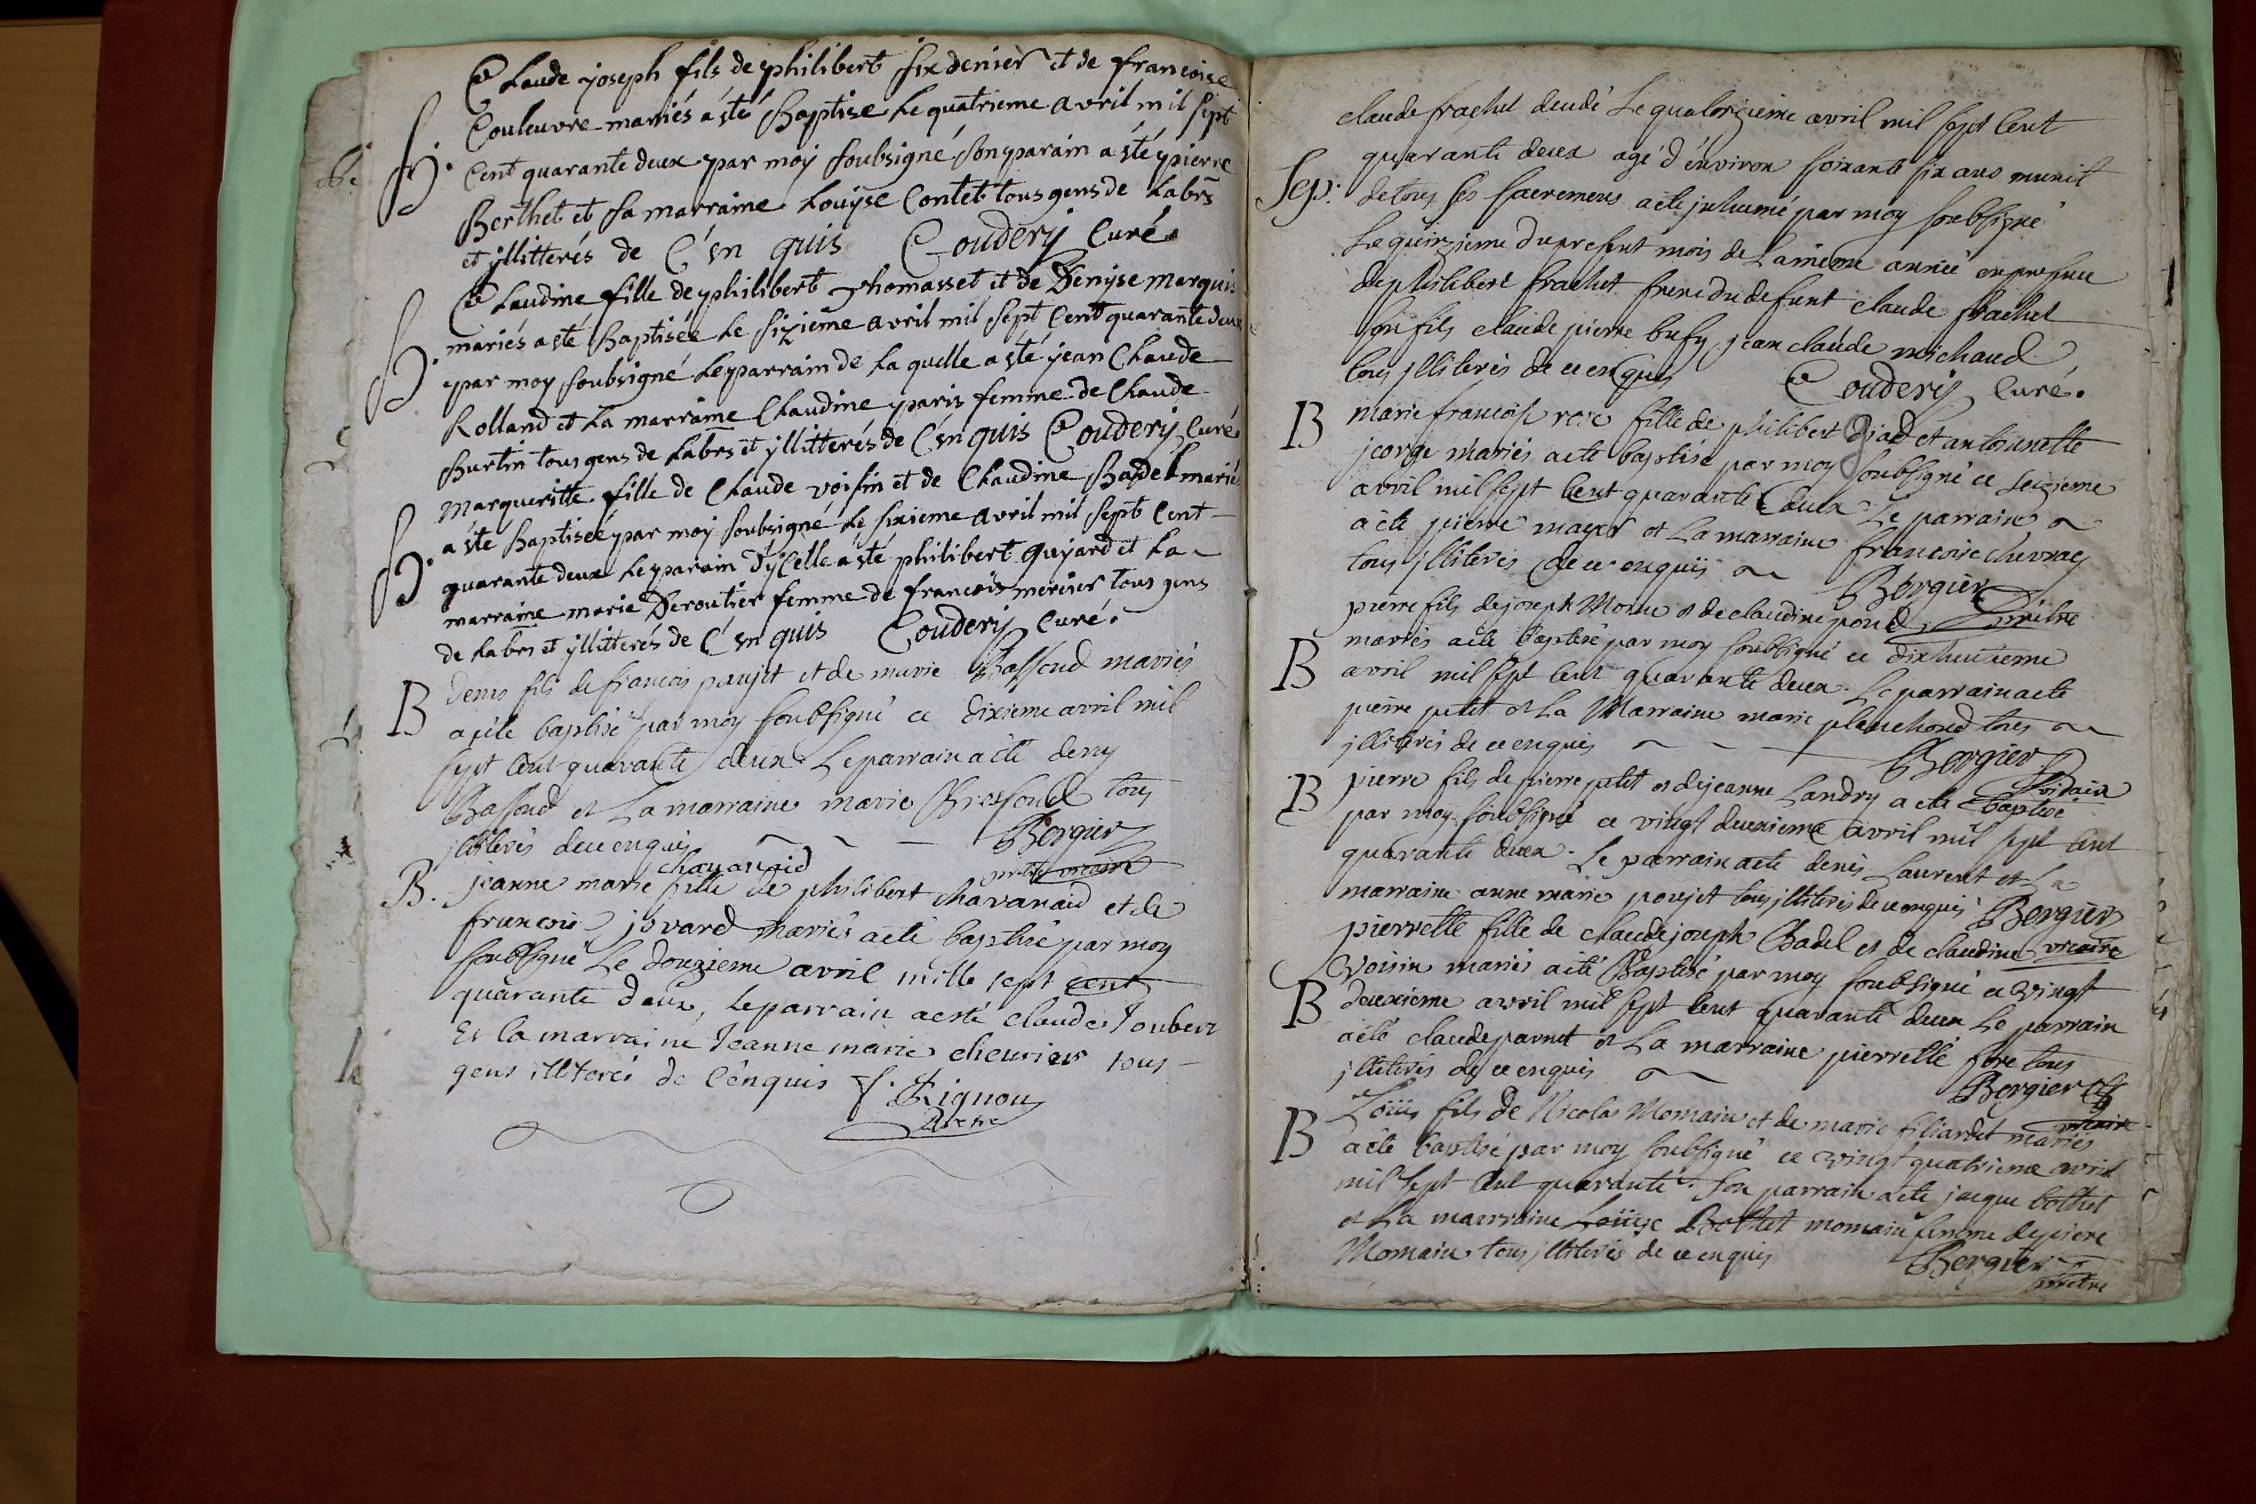 Claude joseph fils de philibert sixdenier et de francoise
B. Couleuvre mariés a été Baptise Le quatrieme avril mil sept
Cent quarante deux par moy soubsigné son parain a été pierre
Berthet et sa marraine Louyse Contet tous gens de Labrs
et yllitterés de C'en quis Coudery Curé.
Claudine fille de philibert Thomasset et de Denyse marquis
B. mariés a été Baptisée Le sizieme avril mil sept Cent quarante deux
par moy soubsigné Le parrain de La quelle a été jean Claude
Rolland et La marraine Claudine paris femme de Claude
Burtin tous gens de Labrs et yllitterés de C'en quis Coudery Curé
Margueritte fille de Claude voisin et de Claudine Badel mariés
B. a été Baptisée par moy soubsigné Le sixieme avril mil sept Cent
quarante deux Le parain d'ycelle a été philibert guyard et La
marraine marie Deroutier femme de francois mercier tous gens
de Labrs et yllitterés de C'en quis Coudery Curé.
B Denis fils de francois paujet et de marie Bassoud mariés
a eté baptisé par moy soubsigné ce dixieme avril mil
sept cent quarante deux Le parrain a eté deny
Bassoud et La marraine marie tous
jlliterés de ce enquis Bergier
chavanaid prêtre vicaire
B. jeanne marie fille de philibert chavanaid et de
francoise jovard mariés a eté baptisé par moy
soubsigné Le douzieme avril mille sept cent
quarante deux, Le parrain a esté claude Joubert
Et la marraine Jeanne marie chevrier tous
gens illiterés de C'enquis f. Rignon
Pbetre
claude frachet decedé Le quatorzieme avril mil sept cent
quarante deux agé d'environ soixante six ans munit
Sep: de tous ses sacremens a eté jnhumé par moy soubsigné
Le quinzieme du present mois de La même année en presence
de philibert frachet frere du defunt claude frachet
son fils claude pierre bussy jean claude michaud
tous jlliterés de ce enquis Coudery Curé.
B marie francoise rose fille de philibert djad et antoinette
jeorge mariés a eté baptisé par moy soubsigné ce seizieme
avril mil sept cent quarante deux Le parrain
a eté pierre mayet et La marraine francoise chevray
tous jlliterés de ce enquis Bergier
Prêtre
pierre fils de joseph Morin et de claudine poud
B mariés a eté baptisé par moy soubsigné ce dixhuitieme
avril mil sept cent quarante deux. Le parrain a eté
pierre petit et La Marraine marie planchond tous
jlliterés de ce enquis Bergier
vicaire
B pierre fils de pierre petit et de jeanne Landry a eté baptisé
par moy soubsigné ce vingt deuxieme avril mil sept cent
quarante deux. Le parrain a eté denis Laurent et La
marraine anne marie poujet tous jlliterés de ce enquis Bergier
vicaire
pierrette fille de claude joseph Badel et de claudine
Voisin mariés a eté Baptisé par moy soubsigné ce vingt
B deuxieme avril mil sept cent quarante deux Le parrain
a eté claude parnet et La marraine pierrette fore tous
jlliterés de ce enquis Bergier
vicaire
Loüis fils de Nicolas Momain et de marie filiardet mariés
B a eté baptisé par moy soubsigné ce vingt quatrieme avril
mil sept cent quarante. son parrain a eté jacque bothet
et La marraine Loüise Bothet momain femme de piere
Momain tous jlliterés de ce enquis Bergier
prêtre